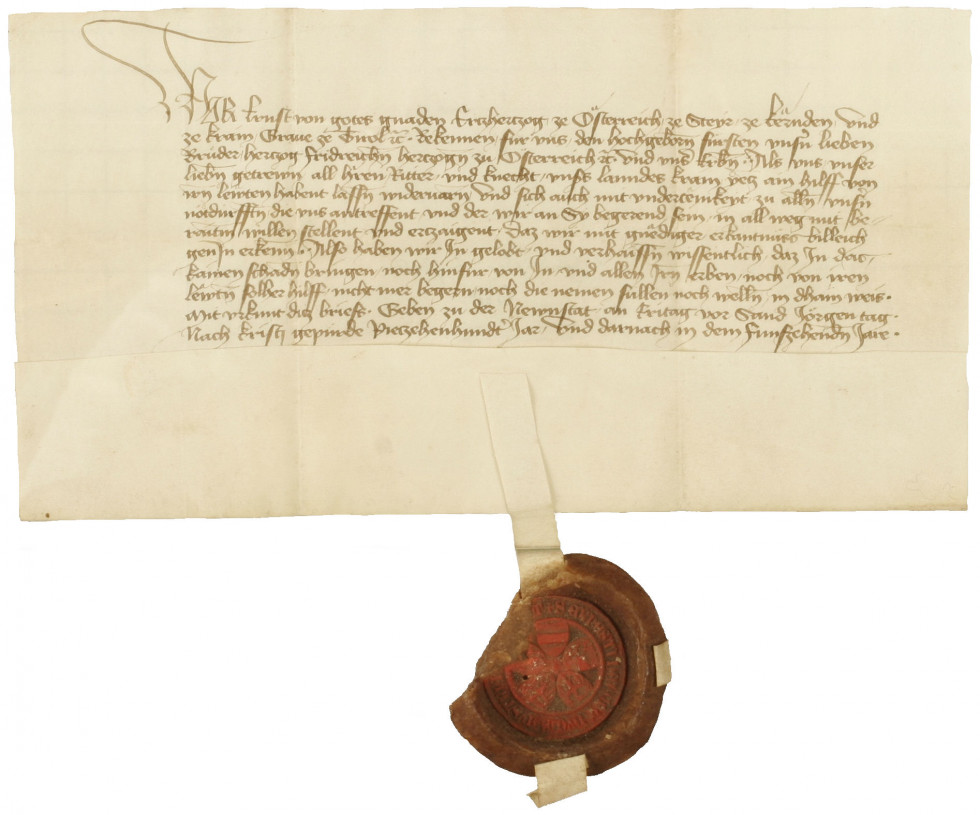 WIR Ernst von gotes gnaden Ertzhertzog ze Österreich ze Steyr ze kërnden vnd
ze krain Graue ze Tirol etc Bekennen für vns den hochgeborn fürsten vnsern lieben
Brüder hertzog fridreichen hertzogn zu Osterreich etc vnd vns Erbn Als vns vnser
liebn getrewn all h'ren Ritter vnd knecht vnsers lanndes krain yetz ain hilff von
irn lewten habent lassn widerfarn vnd sich auch mit vndertenikeyt zu alln vnsern
notdurfftn die vns antreffent vnd der wir an Sy begerend sein in all weg mit be-
raitm willen stellent vnd ertzaigent daz wir mit gnëdiger erkantnüss billeich
gen In erkenn Also haben wir In gelobt vnd verhaissn wissentlich daz In dac
kainen schadn bringen noch hinfür von In vnd allen Irn erben noch von iren
lewtn solher hilff nicht mer begern noch die nemen süllen noch welln in dhain weis
Mit vrkunt ditz briefs Geben zu der Newnstat an fritag vor Sand Jörgen tag
Nach kristi gepurde vierzehenhundert Jar vnd darnach in dem funfzehendn Jare